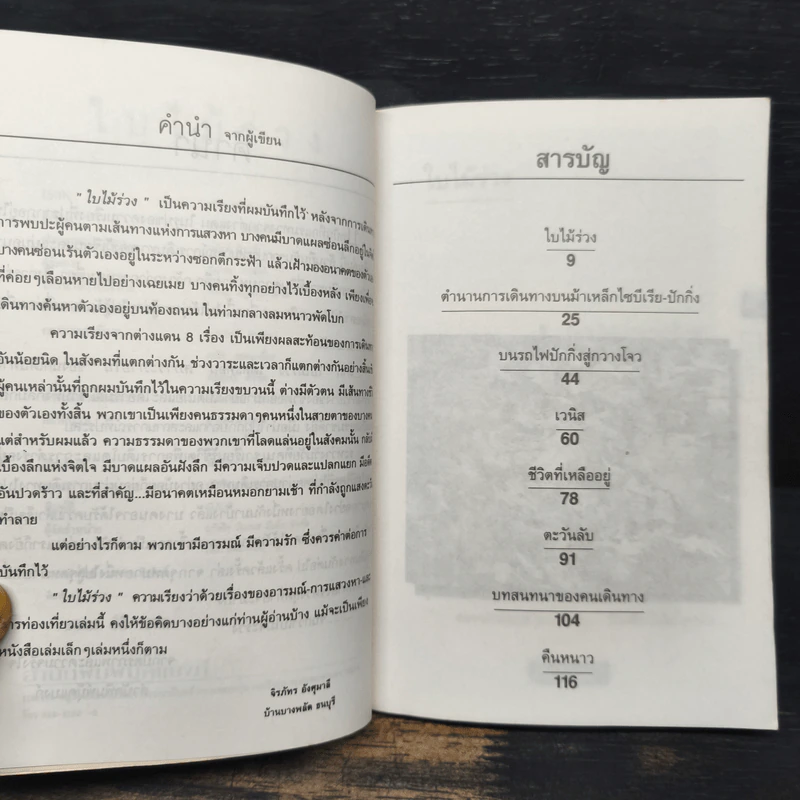 คำนำ จากผู้เขียน
" ใบไม้ร่วง " เป็นความเรียงที่ผมบันทึกไว้ หลังจากการเดินทาง
การพบปะผู้คนตามเส้นทางแห่งการแสวงหา บางคนมีบาดแผลซ่อนลึกอยู่
บางคนซ่อนเร้นตัวเองอยู่ในระหว่างซอกตึกระฟ้า แล้วเฝ้ามองอนาคตของ
ที่ค่อยๆเลือนหายไปอย่างเฉยเมย บางคนทิ้งทุกอย่างไว้เบื้องหลัง
เดินทางค้นหาตัวเองอยู่บนท้องถนน ในท่ามกลางลมหนาวพัดโบก
ความเรียงจากต่างแดน 8 เรื่อง เป็นเพียงผลสะท้อนของการเดินทาง
อันน้อยนิด ในสังคมที่แตกต่างกัน ช่วงวาระและเวลาก็แตกต่างกันอย่าง
ผู้คนเหล่านั้นที่ถูกผมบันทึกไว้ในความเรียงขบวนนี้ ต่างมีตัวตน มีเส้นทาง
ของตัวเองทั้งสิ้น พวกเขาเป็นเพียงคนธรรมดาๆคนหนึ่งในสายตาของ
แต่สำหรับผมแล้ว ความธรรมดาของพวกเขาที่โลดแล่นอยู่ในสังคมนั้น
เบื้องลึกแห่งจิตใจ มีบาดแผลอันฝังลึก มีความเจ็บปวดและแปลกแยก
อันปวดร้าว และที่สำคัญ...มีอนาคตเหมือนหมอกยามเช้า ที่กำลังถูก
ทำลาย
แต่อย่างไรก็ตาม พวกเขามีอารมณ์ มีความรัก ซึ่งควรค่าต่อการ
บันทึกไว้
" ใบไม้ร่วง " ความเรียงว่าด้วยเรื่องของอารมณ์-การแสวงหา-และ
การท่องเที่ยวเล่มนี้ คงให้ข้อคิดบางอย่างแก่ท่านผู้อ่านบ้าง แม้จะเป็นเพียง
หนังสือเล่มเล็กๆเล่มหนึ่งก็ตาม
จิรภัทร อังศุมาลี
บ้านบางพลัด ธนบุรี
สารบัญ
ใบไม้ร่วง
9
ตำนานการเดินทางบนม้าเหล็กไซบีเรีย-ปักกิ่ง
25
บนรถไฟปักกิ่งสู่กวางโจว
44
เวนิส
60
ชีวิตที่เหลืออยู่
78
ตะวันลับ
91
บทสนทนาของคนเดินทาง
104
คืนหนาว
116